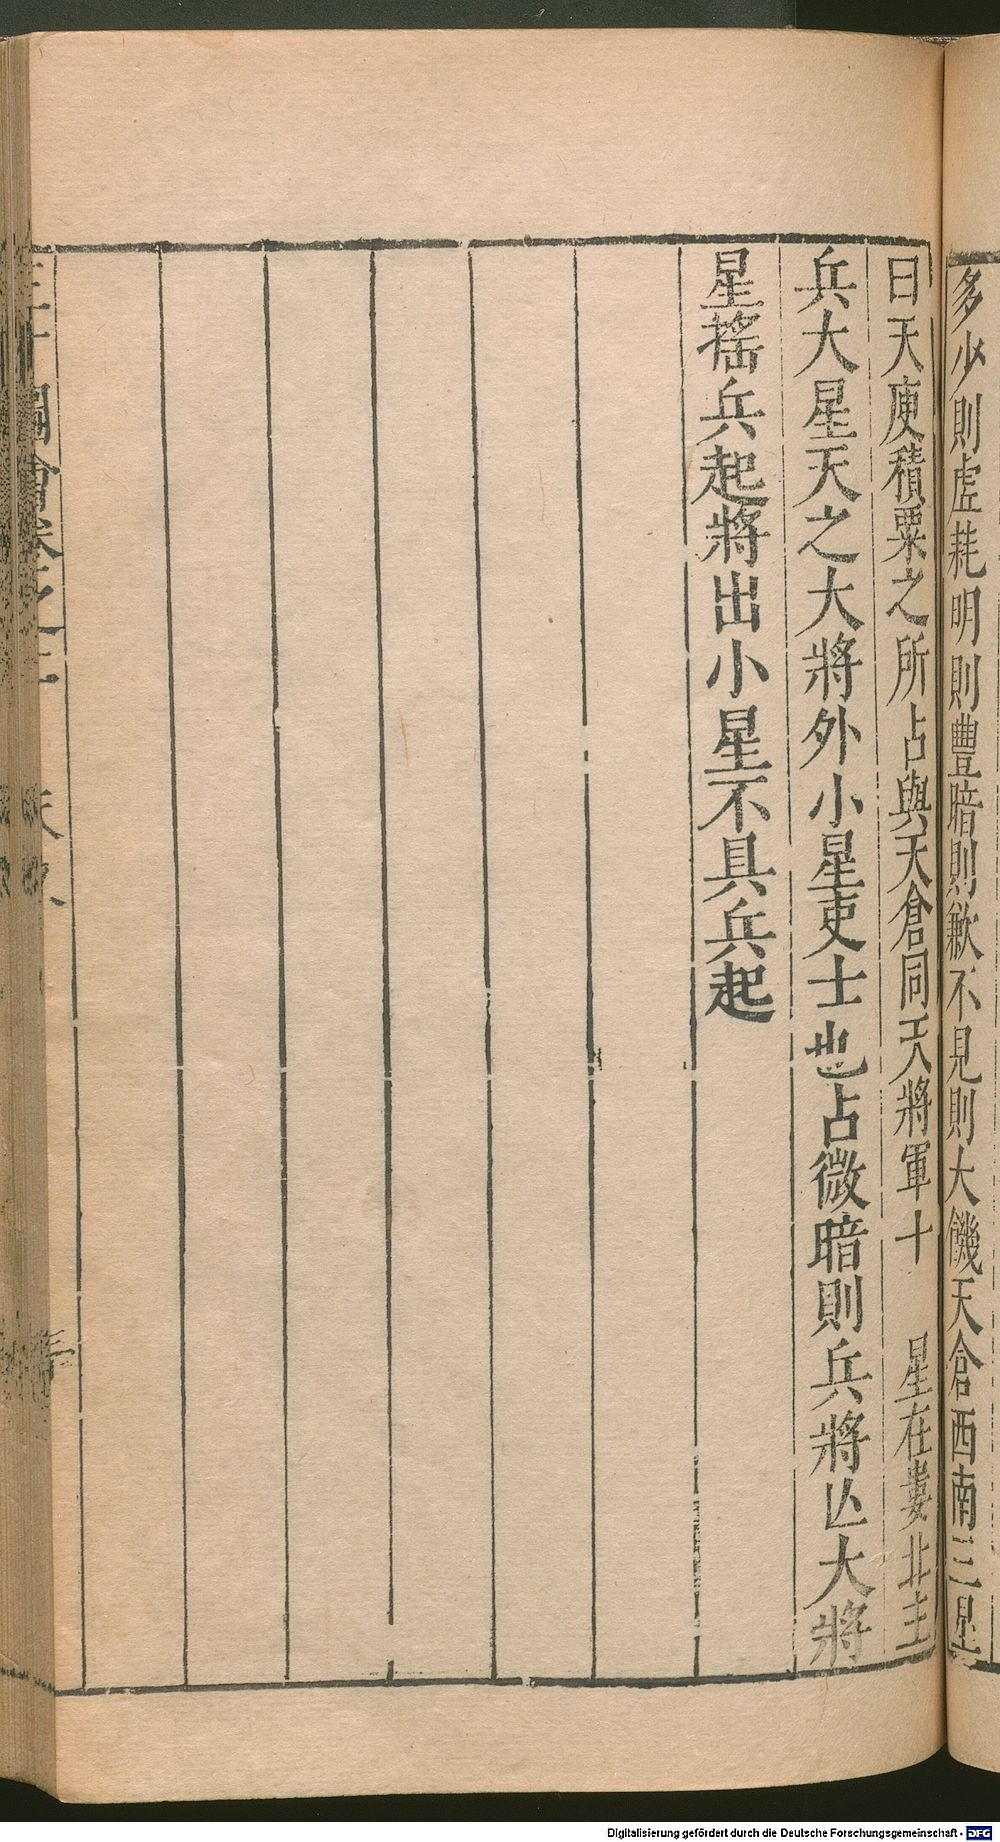 多少則虛耗明則豐暗則歉不見則大饑天倉西南三星
曰天庾積粟之所占與天倉同天將軍十 星在婁北主
兵大星天之大將外小星吏士也占微暗則兵將亾大將
星搖兵起將出小星不具兵起
三才圖會卷之一 天文
Digitalisierung gefördert durch die Deutsche Forschungsgemeinschaft - DFG